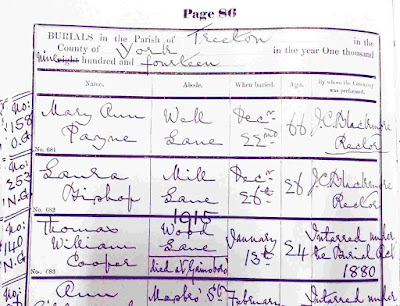 Page 86
BURIALS in the Parish of Treeton in the
County of York in the year One thousand
nine hundred and fourteen
Name. Abode. When buried. Age. By whom the Ceremony was performed.
Mary Ann Payne Well Lane Decr 22nd 66 J.C. Blackmore Rector
No. 681
Laura Bishop Mill Lane Decr 26th 26 J.C. Blackmore Rector
No. 682
1915
Thomas William Cooper Wood Lane January 13th 24 Interred under the Burial Act 1880
died at Gainsboro
No. 683
Ann February Interred under
No:
158
O.G.
No:
253
N.G.
No:
140
N.G.
No: